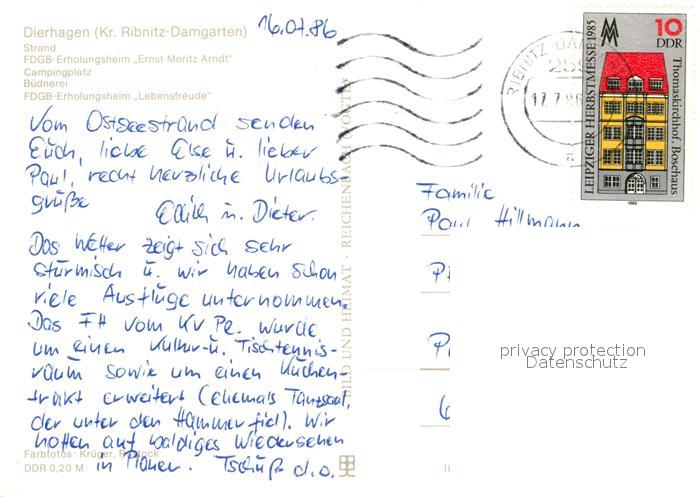 Dierhagen (Kr. Ribnitz-Damgarten)
16.07.86
Strand
FDGB-Erholungsheim „Ernst Moritz Arndt"
Campingplatz
Büdnerei
FDGB-Erholungsheim „Lebensfreude"
Vom Ostseestrand senden
Euch, liebe Else u. lieber
Paul, recht herzliche Urlaubs-
grüße
Edith u. Dieter.
Das Wetter zeigt sich sehr
stürmisch u. wir haben schon
viele Ausflüge unternommen.
Das FH vom KV Pe. wurde
um einen Kultur- u. Tischtennis-
raum sowie um einen Küchen-
trakt erweitert (ehemals Tanzsaal,
der unter den Hammer fiel). Wir
hoffen auf baldiges Wiedersehen
in Plauen. Tschüß d.o.
Farbfotos: Krüger, Rostock
DDR 0,20 M
BILD UND HEIMAT · REICHENBACH (VOGTL)
RIBNITZ-DA
259
17.7.86
10
DDR
LEIPZIGER HERBSTMESSE 1985
Thomaskirchhof, Boschaus
1985
Familie
Paul Hillmann
privacy protection
Datenschutz